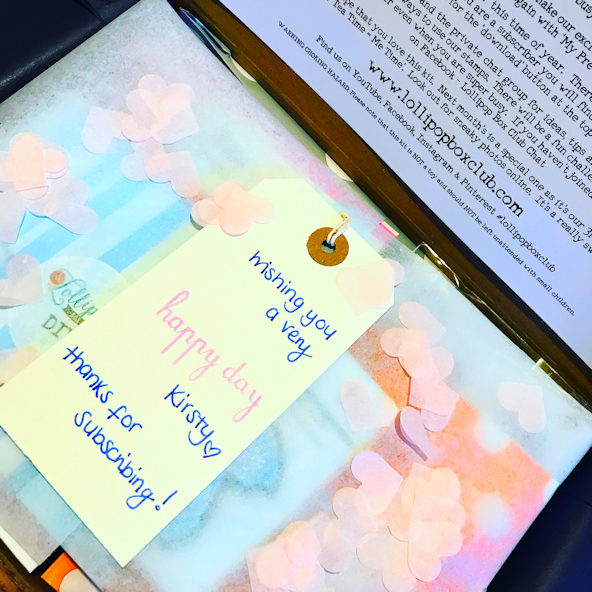 make our exci
again with My Pre
this time of year. There
you are a subscriber you will find
for the download button at the top
and the private chat group for ideas, tips
ways to use our stamps. There will be a fun
even when you are super busy. If you haven't joined
on Facebook - 'Lollipop Box Club Chat'
hope that you love this kit. Next month's is a special one as it's our
Tea Time - Me Time'. Look out for sneaky photos online. It's a really
www.lollipopboxclub.com
Find us on YouTube, Facebook, Instagram & Pinterest #lollipopboxclub
WARNING CHOKING HAZARD: Please note that this kit is NOT a toy and should NOT be left unattended with small children.
Wishing you
a very
happy day
Kirsty♡
thanks for
subscribing!